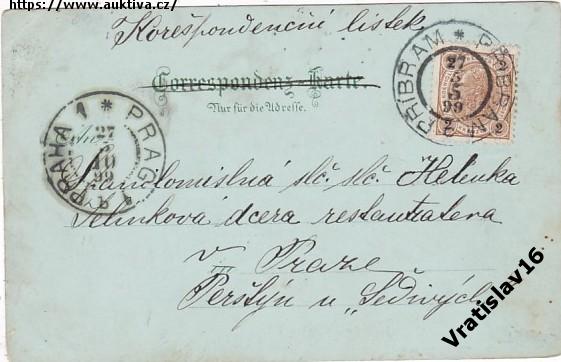 https://www.auktiva.cz/
Korešpondenční lístek
Correspondenz-Karte.
Nur für die Adresse.
PŘÍBRAM * PŘIBRAM
27
5
5
99
2 2
PRAHA 1 * PRAG 1
27
5
10
99
slč. slč. Helenka
dcera restauratera
v Praze
Perštýn u „Šedivých"
Vratislav16